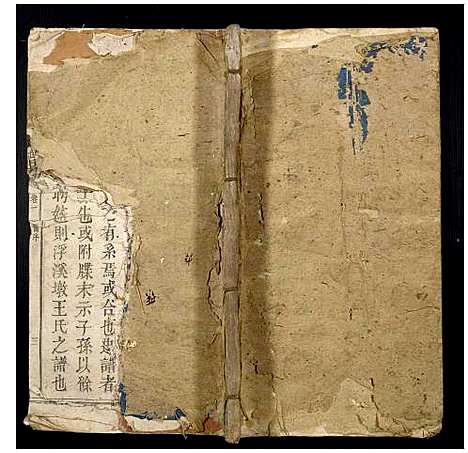 有系焉或合也建譜者
也或附牒末示子孫以餘
然則浮溪墩王氏之譜也
卷一
三